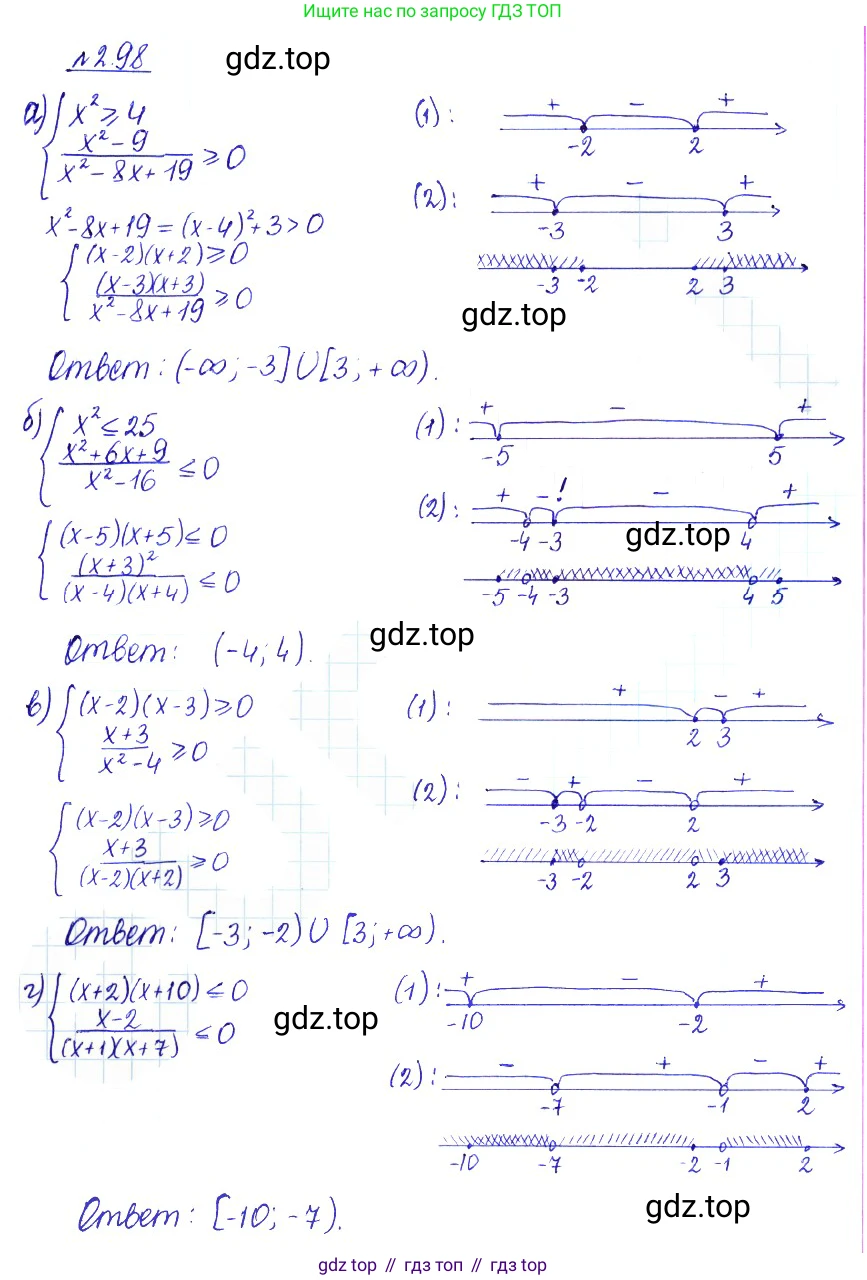 Ищите нас по запросу ГДЗ ТОП
№2.98
gdz.top
а) { x² ≥ 4
(x² - 9)/(x² - 8x + 19) ≥ 0
(1): + - + -2 2
x² - 8x + 19 = (x-4)² + 3 > 0
(2): + - + -3 3
{ (x-2)(x+2) ≥ 0
(x-3)(x+3)/(x² - 8x + 19) ≥ 0
-3 -2 2 3
gdz.top
Ответ: (-∞; -3] ∪ [3; +∞).
б) { x² ≤ 25
(x² + 6x + 9)/(x² - 16) ≤ 0
(1): + - + -5 5
(2): + - ! - + -4 -3 4
gdz.top
{ (x-5)(x+5) ≤ 0
(x+3)²/((x-4)(x+4)) ≤ 0
-5 -4 -3 4 5
gdz.top
Ответ: (-4; 4).
в) { (x-2)(x-3) ≥ 0
(x+3)/(x² - 4) ≥ 0
(1): + - + 2 3
(2): - + - + -3 -2 2
{ (x-2)(x-3) ≥ 0
(x+3)/((x-2)(x+2)) ≥ 0
-3 -2 2 3
Ответ: [-3; -2) ∪ [3; +∞).
г) { (x+2)(x+10) ≤ 0
(x-2)/((x+1)(x+7)) ≤ 0
gdz.top
(1): + - + -10 -2
(2): - + - + -7 -1 2
-10 -7 -2 -1 2
Ответ: [-10; -7).
gdz.top
gdz top // гдз топ // gdz top